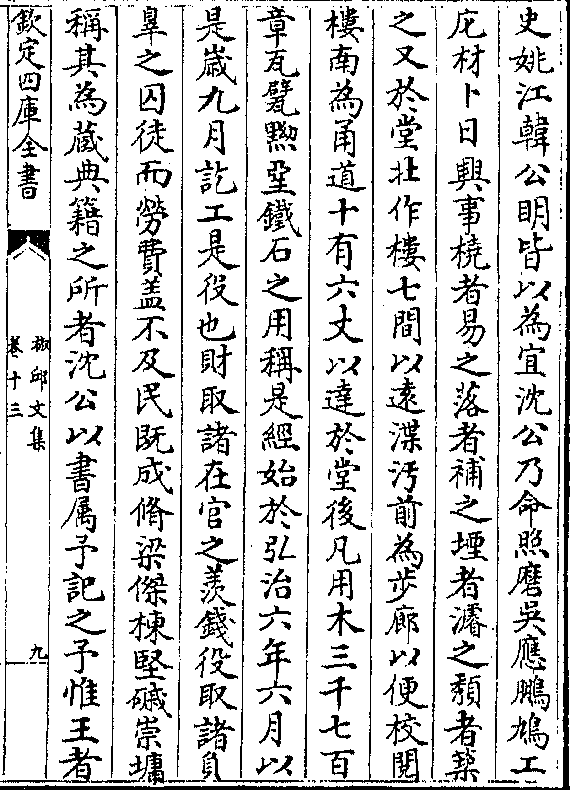 史姚江韓公明皆以為宜沈公乃命照磨吳應鵬鳩工
庀材卜日興事橈者易之落者補之堙者濬之頽者築
之又於堂北作樓七間以逺渫汚前為步廊以便校閲
樓南為甬道十有六丈以達於堂後凡用木三千七百
章瓦甓黝堊鐵石之用稱是經始於弘治六年六月以
是嵗九月訖工是役也財取諸在官之羨錢役取諸負
辠之囚徒而勞費盖不及民既成脩梁傑棟堅磩崇墉
稱其為藏典籍之所者沈公以書属予記之予惟王者
欽定四庫全書
椒邱文集
卷十三
九